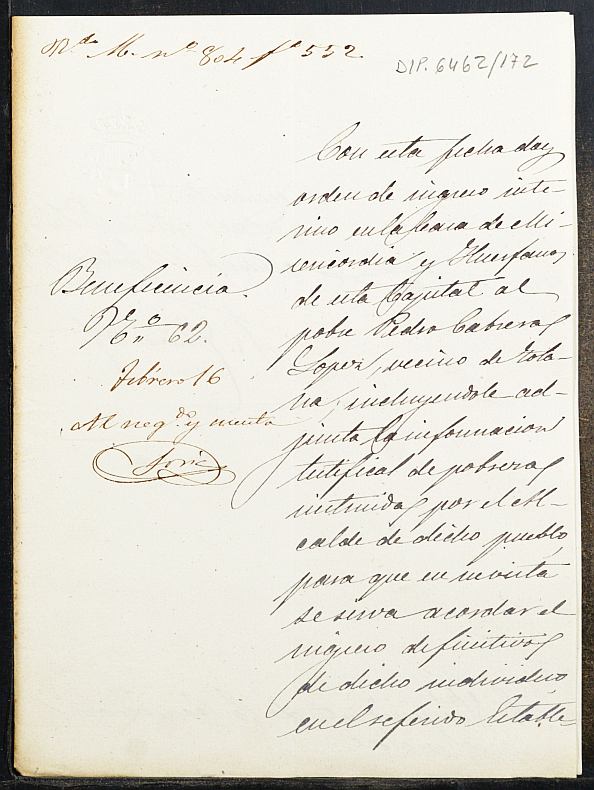 R.do M. nº 804 fº 552.
DIP. 6462/172
Con esta fecha doy
orden de ingreso inte-
rino en la Casa de Mi-
sericordia y Huerfanos
de esta Capital al
pobre Pedro Cabrera
Lopez, vecino de Tota-
na, incluyendole ad-
junta la informacion
testifical de pobreza
instruida por el Al-
calde de dicho pueblo,
para que en su vista
se sirva acordar el
ingreso definitivo
de dicho individuo
en el referido Estable-
Beneficencia.
62.
Febrero 16
Al neg.do y cuenta